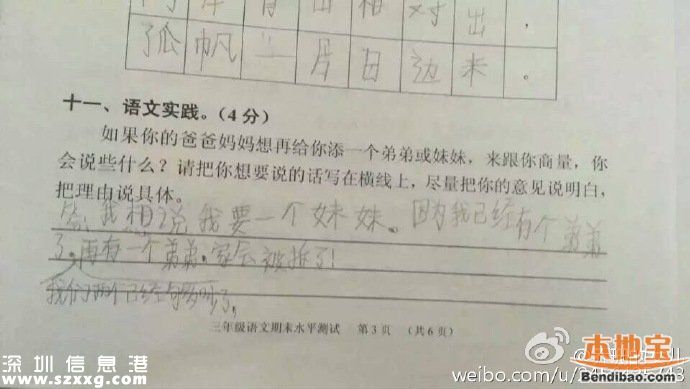 出 。
孤 帆 一 片 日 边 来 。
十一、语文实践。(4分)
如果你的爸爸妈妈想再给你添一个弟弟或妹妹，来跟你商量，你
会说些什么？请把你想要说的话写在横线上，尽量把你的意见说明白，
把理由说具体。
答：我想说我要一个妹妹。因为我已经有个弟弟
了，再有一个弟弟，家会被拆了！
我们两个已经够
了，
三年级语文期末水平测试 第3页 (共6页)
深圳信息港
www.szxxg.com
weibo.com/u/
本地宝
Bendibao.com